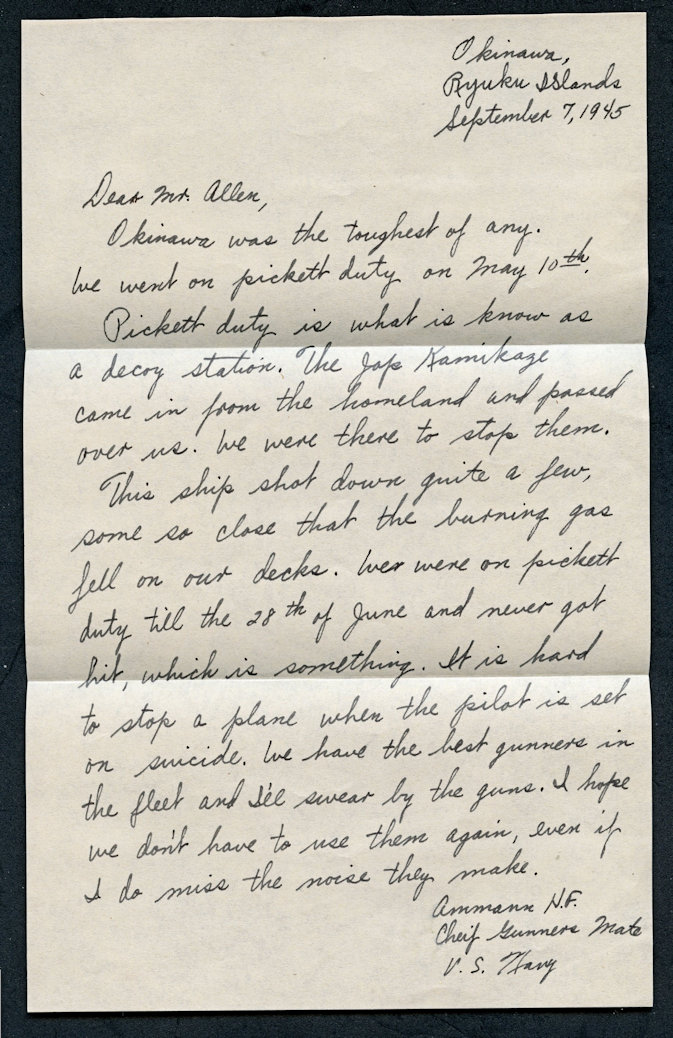 Okinawa,
Ryuku Islands
September 7, 1945
Dear Mr. Allen,
Okinawa was the toughest of any.
We went on pickett duty on May 10th.
Pickett duty is what is know as
a decoy station. The Jap Kamikaze
came in from the homeland and passed
over us. We were there to stop them.
This ship shot down quite a few,
some so close that the burning gas
fell on our decks. Wer were on pickett
duty till the 28th of June and never got
hit, which is something. It is hard
to stop a plane when the pilot is set
on suicide. We have the best gunners in
the fleet and I'll swear by the guns. I hope
we don't have to use them again, even if
I do miss the noise they make.
Ammann N.F.
Cheif Gunners Mate
U. S. Navy